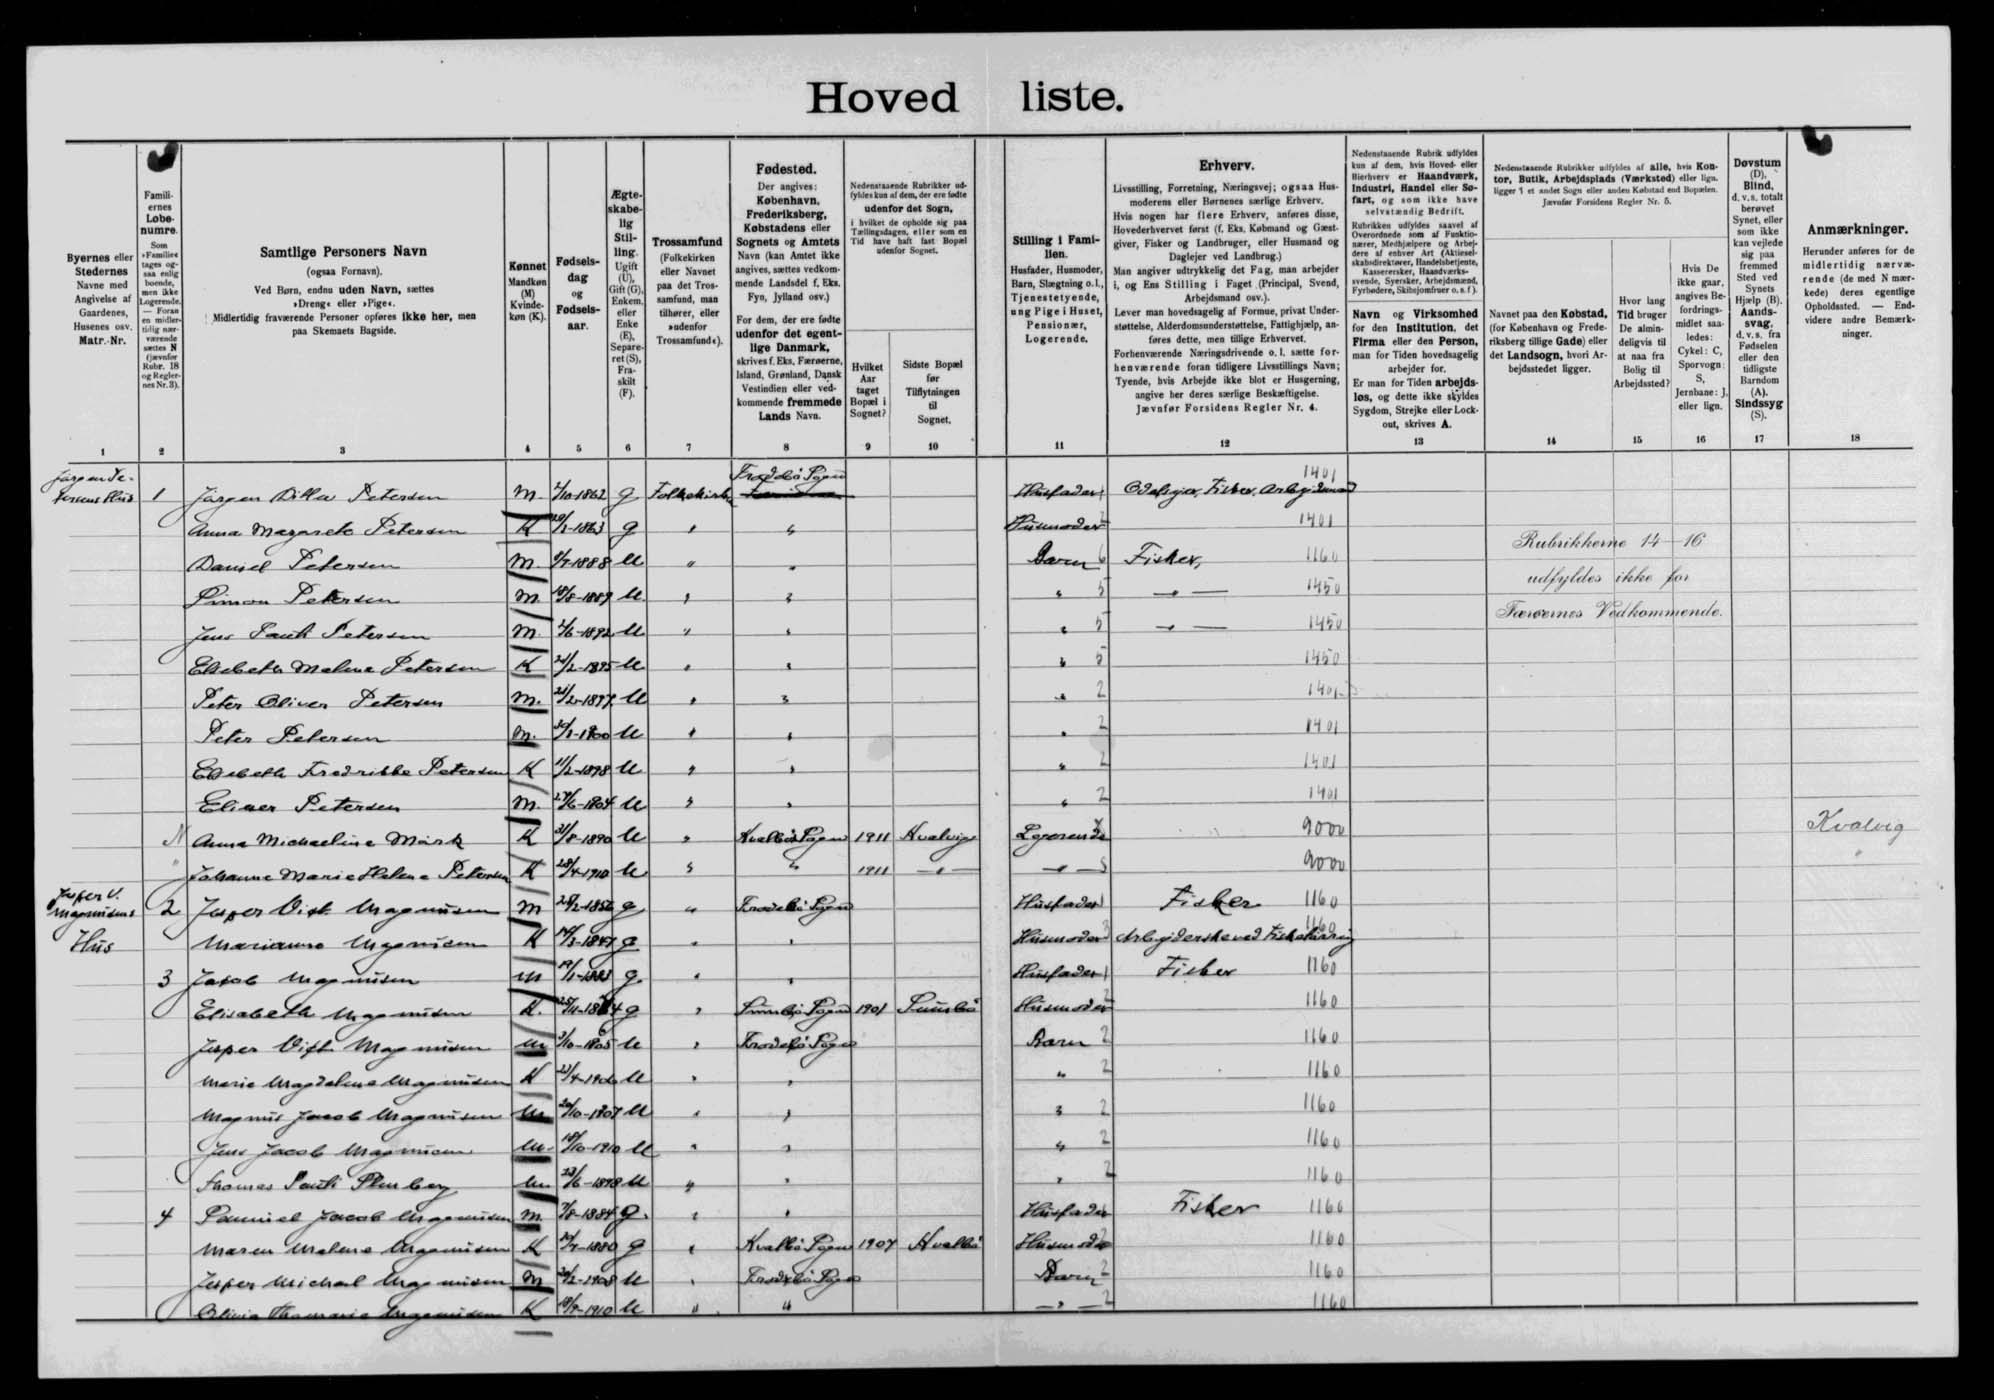 Hoved liste.
Byernes eller Stedernes Navne med Angivelse af Gaardenes, Husenes osv. Matr.-Nr.
Famili-ernes Løbe-numre. Som »Familie« tages og-saa enlig boende, men ikke Logerende. — Foran en midler-tidig nær-værende sættes N (jævnfør Rubr. 18 og Regler-nes Nr. 3).
Samtlige Personers Navn (ogsaa Fornavn). Ved Børn, endnu uden Navn, sættes »Dreng« eller »Pige«. Midlertidig fraværende Personer opføres ikke her, men paa Skemaets Bagside.
Kønnet Mandkøn (M) Kvinde-køn (K).
Fødsels-dag og Fødsels-aar.
Ægte-skabe-lig Stil-ling. Ugift (U), Gift (G), Enkem. eller Enke (E), Separe-ret (S), Fra-skilt (F).
Trossamfund (Folkekirken eller Navnet paa det Tros-samfund, man tilhører, eller »udenfor Trossamfund«).
Fødested. Der angives: København, Frederiksberg, Købstadens eller Sognets og Amtets Navn (kan Amtet ikke angives, sættes vedkom-mende Landsdel f. Eks. Fyn, Jylland osv.) For dem, der ere fødte udenfor det egent-lige Danmark, skrives f. Eks. Færøerne, Island, Grønland, Dansk Vestindien eller ved-kommende fremmede Lands Navn.
Nedenstaaende Rubrikker ud-fyldes kun af dem, der ere fødte udenfor det Sogn, i hvilket de opholde sig paa Tællingsdagen, eller som en Tid have haft fast Bopæl udenfor Sognet.
Hvilket Aar taget Bopæl i Sognet?
Sidste Bopæl før Tilflytningen til Sognet.
Stilling i Fami-lien. Husfader, Husmoder, Barn, Slægtning o. l., Tjenestetyende, ung Pige i Huset, Pensionær, Logerende.
Erhverv. Livsstilling, Forretning, Næringsvej; ogsaa Hus-moderens eller Børnenes særlige Erhverv. Hvis nogen har flere Erhverv, anføres disse, Hovederhvervet først (f. Eks. Købmand og Gæst-giver, Fisker og Landbruger, eller Husmand og Daglejer ved Landbrug.) Man angiver udtrykkelig det Fag, man arbejder i, og Ens Stilling i Faget (Principal, Svend, Arbejdsmand osv.). Lever man hovedsagelig af Formue, privat Under-støttelse, Alderdomsunderstøttelse, Fattighjælp, an-føres dette, men tillige Erhvervet. Forhenværende Næringsdrivende o. l. sætte for-henværende foran tidligere Livsstillings Navn; Tyende, hvis Arbejde ikke blot er Husgerning, angive her deres særlige Beskæftigelse. Jævnfør Forsidens Regler Nr. 4.
Nedenstaaende Rubrik udfyldes kun af dem, hvis Hoved- eller Bierhverv er Haandværk, Industri, Handel eller Sø-fart, og som ikke have selvstændig Bedrift. Rubrikken udfyldes saavel af Overordnede som af Funktio-nærer, Medhjælpere og Arbej-dere af enhver Art (Aktiesel-skabsdirektører, Handelsbetjente, Kasserersker, Haandværks-svende, Syersker, Arbejdsmænd, Fyrbødere, Skibsjomfruer o. s. f.).
Navn og Virksomhed for den Institution, det Firma eller den Person, man for Tiden hovedsagelig arbejder for. Er man for Tiden arbejds-løs, og dette ikke skyldes Sygdom, Strejke eller Lock-out, skrives A.
Nedenstaaende Rubrikker udfyldes af alle, hvis Kon-tor, Butik, Arbejdsplads (Værksted) eller lign. ligger i et andet Sogn eller anden Købstad end Bopælen. Jævnfør Forsidens Regler Nr. 5.
Navnet paa den Købstad, (for København og Frede-riksberg tillige Gade) eller det Landsogn, hvori Ar-bejdsstedet ligger.
Hvor lang Tid bruger De almin-deligvis til at naa fra Bolig til Arbejdssted?
Hvis De ikke gaar, angives Be-fordrings-midlet saa-ledes: Cykel: C, Sporvogn: S, Jernbane: J, eller lign.
Døvstum (D), Blind, d. v. s. totalt berøvet Synet, eller som ikke kan vejlede sig paa fremmed Sted ved Synets Hjælp (B). Aands-svag, d. v. s. fra Fødselen eller den tidligste Barndom (A). Sindssyg (S).
Anmærkninger. Herunder anføres for de midlertidig nærvæ-rende (de med N mær-kede) deres egentlige Opholdssted. — End-videre andre Bemærk-ninger.
1 2 3 4 5 6 7 8 9 10 11 12 13 14 15 16 17 18
1 Jørgen Ditlev Petersen M. 1862 G Folkekirken Frodebø Sogn Husfader 1 Odelsejer, Fisker, Arbejdsmand 1401
Anna Margarete Petersen K 1863 G " " Husmoder 2 1401
Daniel Petersen M. 1888 U " " Barn 6 Fisker, 1160
Simon Petersen M. 1889 U " " " 5 — " — 1450
Jens Pauli Petersen M. 1892 U " " " 5 — " — 1450
Elsebeth Malene Petersen K 1895 U " " " 5 1450
Peter Oliver Petersen M. 1897 U " " " 2 1401
Peter Petersen M. 1900 U " " " 2 1401
Elsebeth Fredrikke Petersen K 1898 U " " " 2 1401
Elieser Petersen M. 1904 U " " " 2 1401
N Anna Michaeline Mørk K 1890 U " Kvalbø Sogn 1911 Hvalvig Logerende 9000 Kvalvig
" Johanne Marie Helene Petersen K 28/4-1910 U " " 1911 — " — — " — 9000 "
Rubrikkerne 14-16
udfyldes ikke for
Færøernes Vedkommende.
Jesper V. Magnusens Hus
2 Jesper Vist Magnusen M 1856 G " Frodebø Sogn Husfader 1 Fisker 1160
Marianne Magnusen K 1847 G " " Husmoder Arbejderske ved Fisketørring 1160
3 Jacob Magnusen M G " " Husfader 1 Fisker 1160
Elisabeth Magnusen K. G " Sumbø Sogn 1901 Sumbø Husmoder 2 1160
Jesper Vist Magnusen M 1905 U " Frodebø Sogn Barn 2 1160
Marie Magdalene Magnusen K 1906 U " " " 2 1160
Magnus Jacob Magnusen M 1907 U " " " 2 1160
Jens Jacob Magnusen M 1910 U " " " 2 1160
Thomas Pauli M 1898 U " " " 2 1160
4 Samuel Jacob Magnusen M. 1884 G. " " Husfader Fisker 1160
Maren Malene Magnusen K 1880 G " Kvalbø Sogn 1907 Hvalbø Husmoder 1160
Jesper Michael Magnusen M 1908 U " Frodebø Sogn Barn 2 1160
Olivia Thomasia Magnusen K 1910 U " " — " — 2 1160